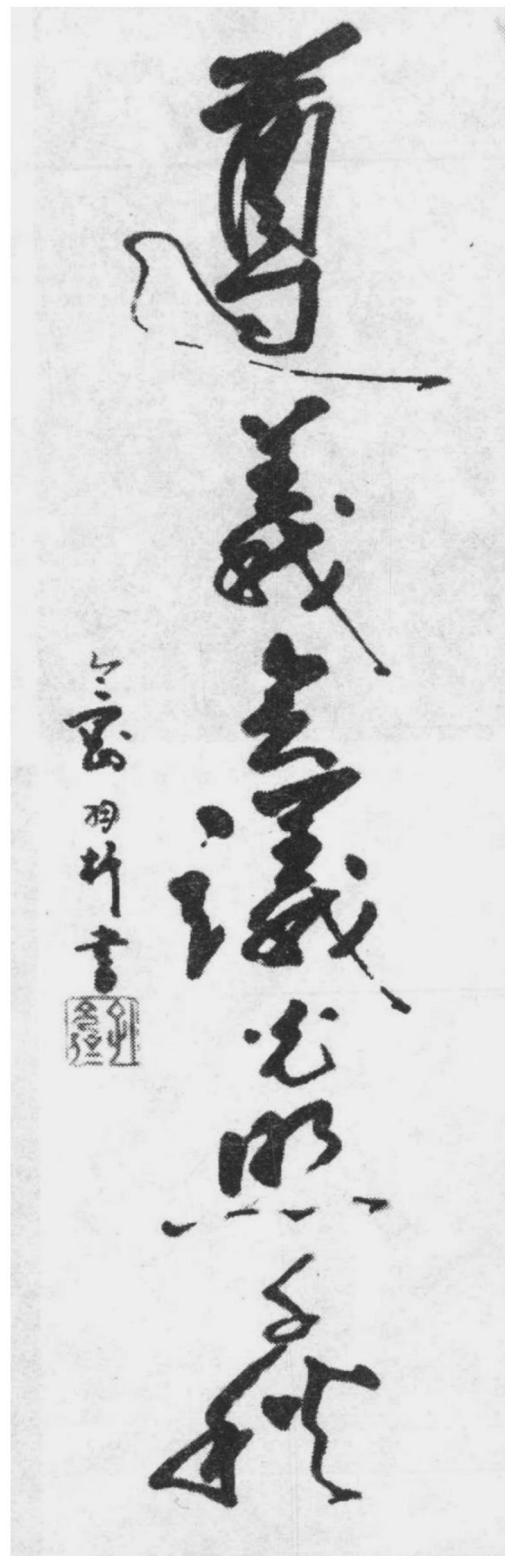 遵義会議光照千秋
書